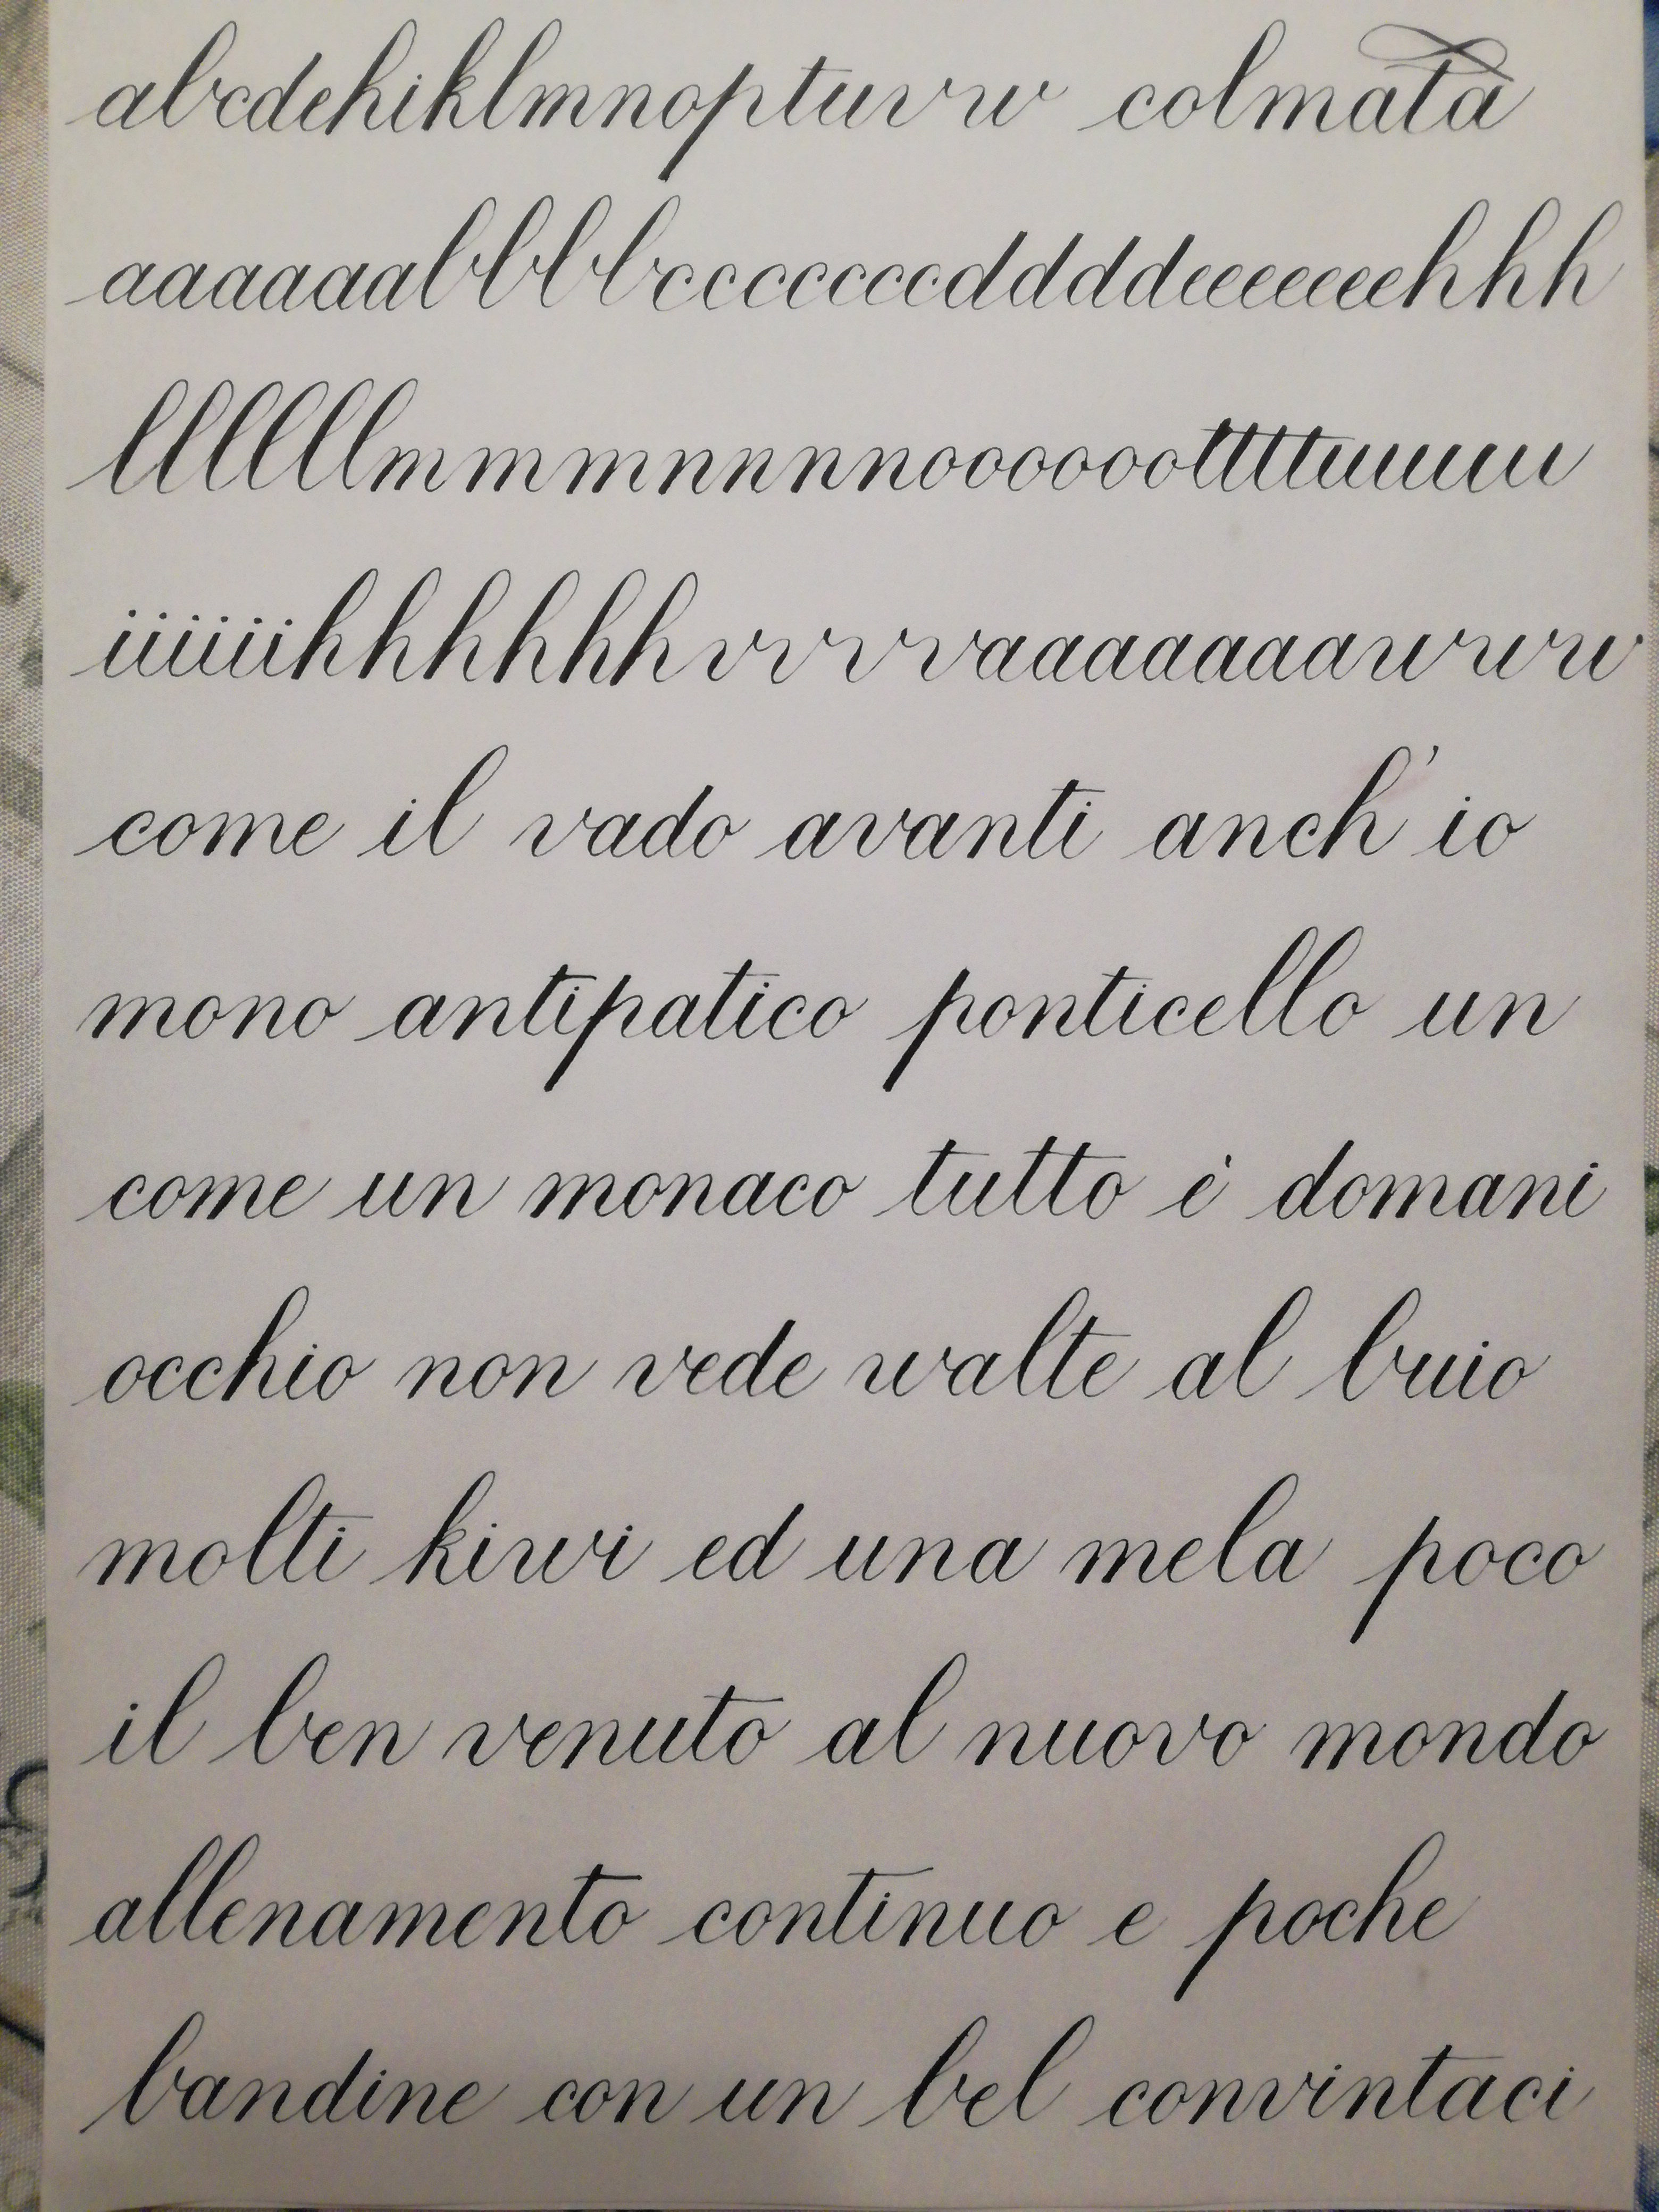 abcdehiklmnoptuvw colmata
aaaaaaabbbbccccccccdddddeeeeeeeehhh
llllllmmmnnnnoooooottttuuuuu
iiiiiihhhhhhvvvvaaaaaaaawww
come il vado avanti anch'io
mono antipatico ponticello un
come un monaco tutto è domani
occhio non vede walte al buio
molti kiwi ed una mela poco
il ben venuto al nuovo mondo
allenamento continuo e poche
bandine con un bel convintaci